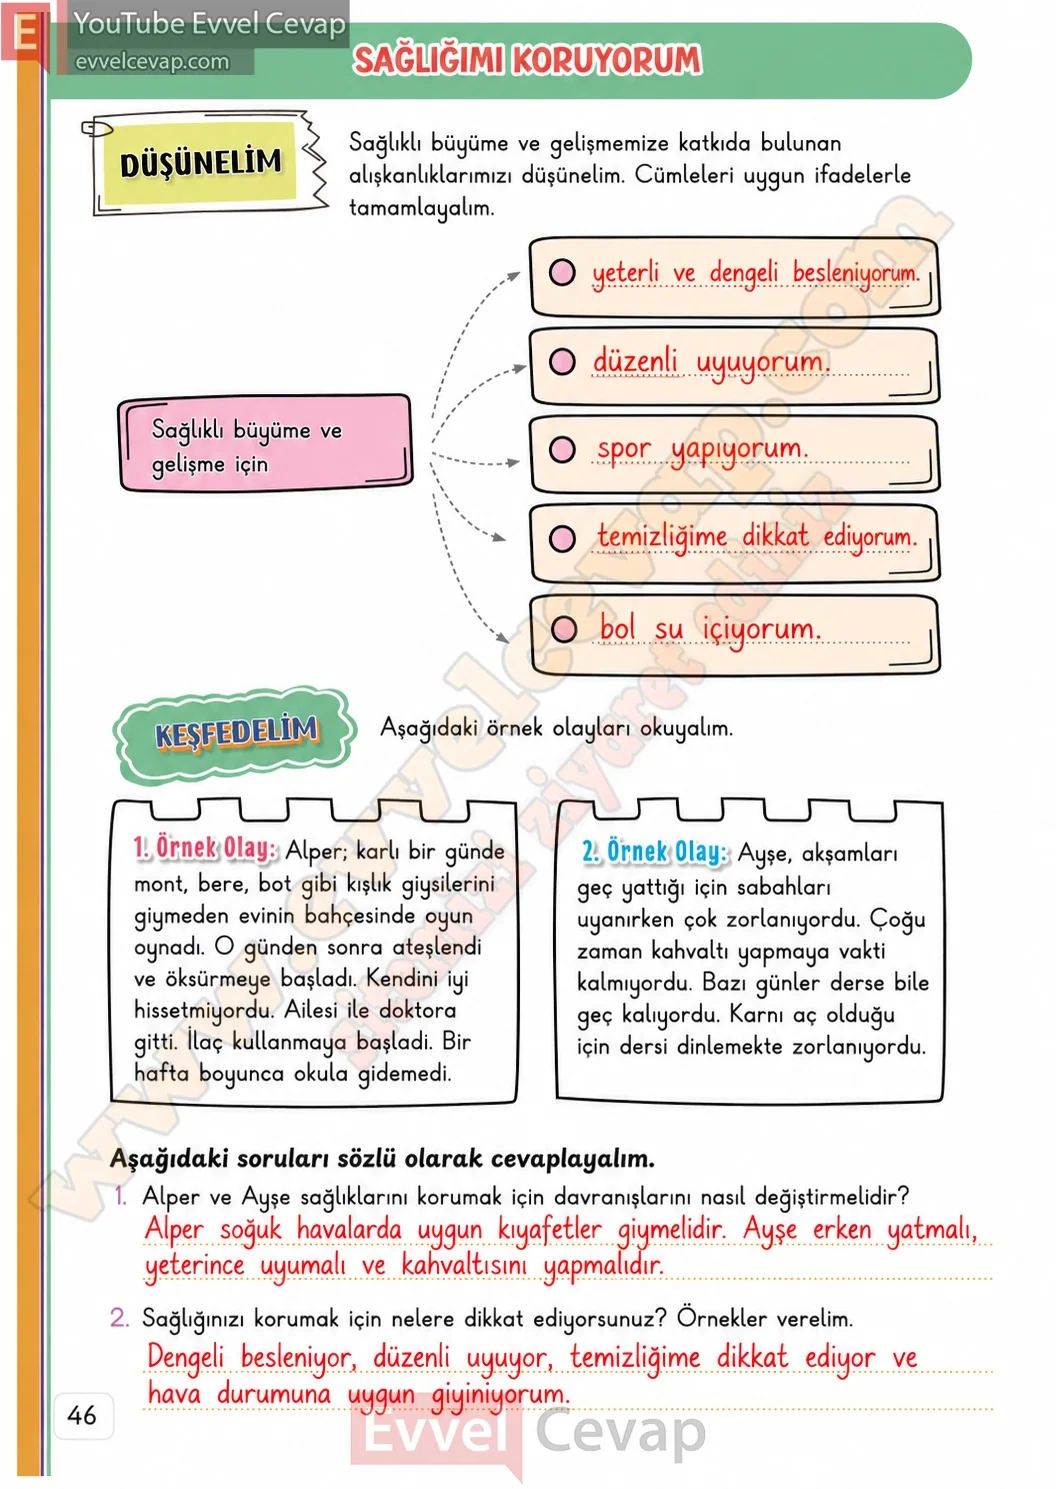 YouTube Evvel Cevap
evvelcevap.com
SAĞLIĞIMI KORUYORUM
DÜŞÜNELİM
Sağlıklı büyüme ve gelişmemize katkıda bulunan
alışkanlıklarımızı düşünelim. Cümleleri uygun ifadelerle
tamamlayalım.
Sağlıklı büyüme ve
gelişme için
yeterli ve dengeli besleniyorum.
düzenli uyuyorum.
spor yapıyorum.
temizliğime dikkat ediyorum.
bol su içiyorum.
KEŞFEDELİM
Aşağıdaki örnek olayları okuyalım.
1. Örnek Olay: Alper; karlı bir günde
mont, bere, bot gibi kışlık giysilerini
giymeden evinin bahçesinde oyun
oynadı. O günden sonra ateşlendi
ve öksürmeye başladı. Kendini iyi
hissetmiyordu. Ailesi ile doktora
gitti. İlaç kullanmaya başladi. Bir
hafta boyunca okula gidemedi.
2. Örnek Olay: Ayşe, akşamları
geç yattığı için sabahları
uyanırken çok zorlanıyordu. Çoğu
zaman kahvaltı yapmaya vakti
kalmıyordu. Bazı günler derse bile
geç kalıyordu. Karnı aç olduğu
için dersi dinlemekte zorlanıyordu.
Aşağıdaki soruları sözlü olarak cevaplayalım.
1. Alper ve Ayşe sağlıklarını korumak için davranışlarını nasıl değiştirmelidir?
Alper soğuk havalarda uygun kıyafetler giymelidir. Ayşe erken yatmalı,
yeterince uyumalı ve kahvaltısını yapmalıdır.
2. Sağlığınızı korumak için nelere dikkat ediyorsunuz? Örnekler verelim.
Dengeli besleniyor, düzenli uyuyor, temizliğime dikkat ediyor ve
hava durumuna uygun giyiniyorum.
46
Evvel Cevap
www.evvelcevap.com
sitemizi ziyaret ediniz